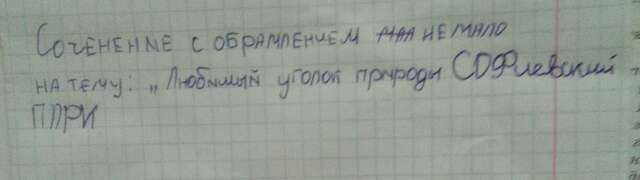 Соченение с обрамлением немало
на тему: „Любимый уголок природы СОФиевский
ППРИ